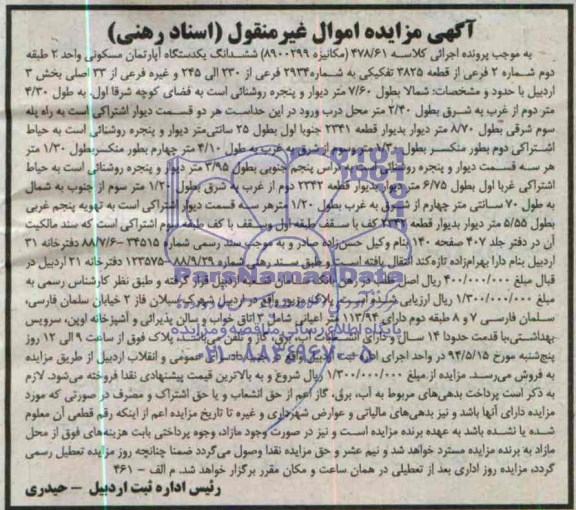 آگهی مزایده اموال غیرمنقول (اسناد رهنی)
به موجب پرونده اجرائی کلاسه ۴۷۸/۶۱ (مکانیزه ۸۹۰۰۲۹۹) ششدانگ یکدستگاه آپارتمان مسکونی واحد ۲ طبقه
دوم شماره ۲ فرعی از قطعه ۳۸۲۵ تفکیکی به شماره ۲۹۳۴ فرعی از ۲۳۰ الی ۲۴۵ و غیره فرعی از ۳۳ اصلی بخش ۳
اردبیل با حدود و مشخصات: شمالا بطول ۷/۶۰ متر دیوار و پنجره روشنائی است به فضای کوچه شرقا اول، به طول ۴/۳۰
متر دوم از غرب به شرق بطول ۲/۴۰ متر محل درب ورود در این حداست هر دو قسمت دیوار اشتراکی است به راه پله
سوم شرقی بطول ۸/۷۰ متر دیوار بدیوار قطعه ۲۳۴۱ جنوبا اول بطول ۲۵ سانتی‌متر دیوار و پنجره روشنائی است به حیاط
اشتراکی دوم بطور منکسر بطول ۱/۳۰ متر و سوم از شرق به غرب به طول ۴/۱۰ متر چهارم بطور منکسر بطول ۱/۳۰ متر
هر سه قسمت دیوار و پنجره روشنائی پنجم جنوبی بطول ۳/۹۵ متر دیوار و پنجره روشنائی است به حیاط
اشتراکی غربا اول بطول ۶/۷۵ متر دیوار بدیوار قطعه ۲۳۴۲ دوم از غرب به شرق بطول ۱/۲۰ متر سوم از جنوب به شمال
به طول ۷۰ سانتی متر چهارم از شرق به غرب بطول ۱/۲۰ متر هر سه قسمت دیوار اشتراکی است به تهویه پنجم غربی
بطول ۵/۵۵ متر دیوار بدیوار قطعه کف با سقف طبقه اول و سقف با کف طبقه سوم اشتراکی است که سند مالکیت
آن در دفتر جلد ۴۰۷ صفحه ۱۴۰ بنام وکیل حسن‌زاده صادر و به موجب سند رسمی شماره ۳۴۵۱۵ – ۸۸/۷/۶ دفترخانه ۳۱
اردبیل بنام دارا بهرام‌زاده تازه‌کند انتقال یافته است و طبق سند رهنی شماره ۱۲۳۵۷۵ – ۸۸/۹/۲۹ دفترخانه ۲۱ اردبیل در
قبال مبلغ ۴۰۰/۰۰۰/۰۰۰ ریال اصل در رهن بانک شعبه اردبیل قرار گرفته و طبق نظر کارشناس رسمی به
مبلغ ۱/۳۰۰/۰۰۰/۰۰۰ ریال ارزیابی شده و پلاک مزبور واقع در اردبیل شهرک سبلان فاز ۲ خیابان سلمان فارسی،
سلمان فارسی ۷ و ۸ طبقه دوم دارای ۱۱۳/۹۴ متر اعیانی شامل ۳ اتاق خواب و سالن پذیرائی و آشپزخانه اوپن، سرویس
بهداشتی با قدمت حدودا ۱۴ سال و دارای انشعابات آب، برق، گاز و تلفن می‌باشد، پلاک فوق از ساعت ۹ الی ۱۲ روز
پنج‌شنبه مورخ ۹۴/۵/۱۵ در واحد اجرای واقع در عمومی و انقلاب اردبیل از طریق مزایده
به فروش می‌رسد. مزایده از مبلغ ۱/۳۰۰/۰۰۰/۰۰۰ ریال شروع و به بالاترین قیمت پیشنهادی نقدا فروخته می‌شود. لازم
به ذکر است پرداخت بدهی‌های مربوط به آب، برق، گاز اعم از حق انشعاب و یا حق اشتراک و مصرف در صورتی که مورد
مزایده دارای آنها باشد و نیز بدهی‌های مالیاتی و عوارض شهرداری و غیره تا تاریخ مزایده اعم از اینکه رقم قطعی آن معلوم
شده یا نشده باشد به عهده برنده مزایده است و نیز در صورت وجود مازاد، وجوه پرداختی بابت هزینه‌های فوق از محل
مازاد به برنده مزایده مسترد خواهد شد و نیم عشر و حق مزایده نقدا وصول می‌گردد ضمنا چنانچه روز مزایده تعطیل رسمی
گردد، مزایده روز اداری بعد از تعطیلی در همان ساعت و مکان مقرر برگزار خواهد شد. م الف – ۴۶۱
رئیس اداره ثبت اردبیل – حیدری
ParsNamadData
پایگاه اطلاع رسانی مناقصه و مزایده
۰۲۱-۸۸۳۴۹۶۷۰-۵